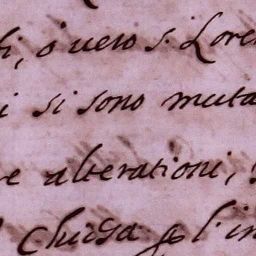 i, o uero s. Lore
i si sono muta
e alterationi,
Chiesa p l'in